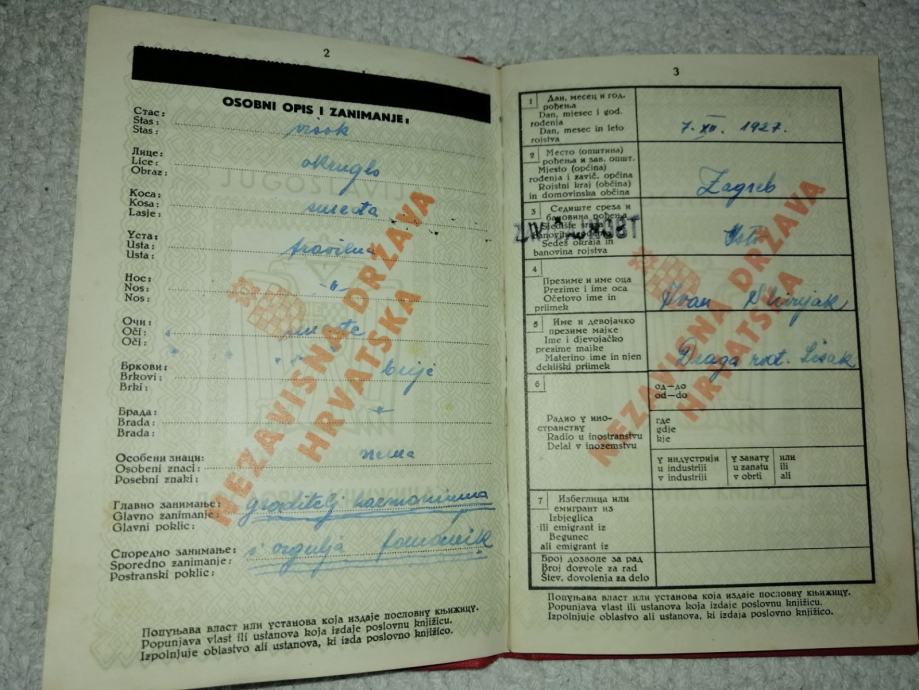 2
OSOBNI OPIS I ZANIMANJE:
Стас:
Stas: visok
Stas:
Лице:
Lice: okruglo
Obraz:
Коса:
Kosa: smeđa
Lasje:
Уста:
Usta: pravilna
Usta:
Нос:
Nos:
Nos:
Очи:
Oči: smeđe
Oči:
Бркови:
Brkovi: brije
Brki:
Брада:
Brada:
Brada:
Особени знаци:
Osobeni znaci: nema
Posebni znaki:
Главно занимање:
Glavno zanimanje: graditelj harmoniuma
Glavni poklic:
Споредно занимање:
Sporedno zanimanje: i orgulja pomoćnik
Postranski poklic:
Попуњава власт или установа која издаје пословну књижицу.
Popunjava vlast ili ustanova koja izdaje poslovnu knjižicu.
Izpolnjuje oblastvo ali ustanova, ki izda poslovno knjižico.
NEZAVISNA DRŽAVA
HRVATSKA
3
1
Дан, месец и год.
рођења
Dan, mjesec i god.
rođenja
Dan, mesec in leto
rojstva
7. XII. 1927.
2
Место (општина)
рођења и зав. општ.
Mjesto (općina)
rođenja i zavič. općina
Rojstni kraj (občina)
in domovinska občina
Zagreb
3
Седиште среза и
бановина рођења
Sedeš okraja in
banovina rojstva
4
Презиме и име оца
Prezime i ime oca
Očetovo ime in
priimek
Ivan
5
Име и девојачко
презиме мајке
Ime i djevojačko
prezime majke
Materino ime in njen
dekliški priimek
Draga rođ. Lisak
6
Радио у ино-
странству
Radio u inostranstvu
Delal v inozemstvu
од—до
od—do
где
gdje
kje
у индустрији
u industriji
v industriji
у занату
u zanatu
v obrti
или
ili
ali
7
Избеглица или
емигрант из
Izbjeglica
ili emigrant iz
Begunec
ali emigrant iz
Број дозволе за рад
Broj dozvole za rad
Štev. dovolenja za delo
Попуњава власт или установа која издаје пословну књижицу.
Popunjava vlast ili ustanova koja izdaje poslovnu knjižicu.
Izpolnjuje oblastvo ali ustanova, ki izdaja poslovno knjižico.
NEZAVISNA DRŽAVA
HRVATSKA